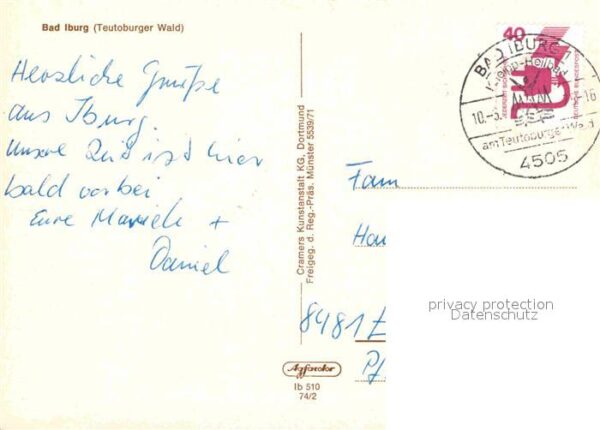 Bad Iburg (Teutoburger Wald)
Herzliche Grüße
aus Iburg.
Unsere Zeit ist hier
bald vorbei
Eure
Daniel
Cramers Kunstanstalt KG, Dortmund
Freigeg. d. Reg.-Präs. Münster 5539/71
40
DEUTSCHE BUNDESPOST
BAD IBURG 1
10.-5.
-16
am Teutoburger Wald
4505
Fam
Hau
8481 E
Pf
privacy protection
Datenschutz
Agfacolor
Ib 510
74/2